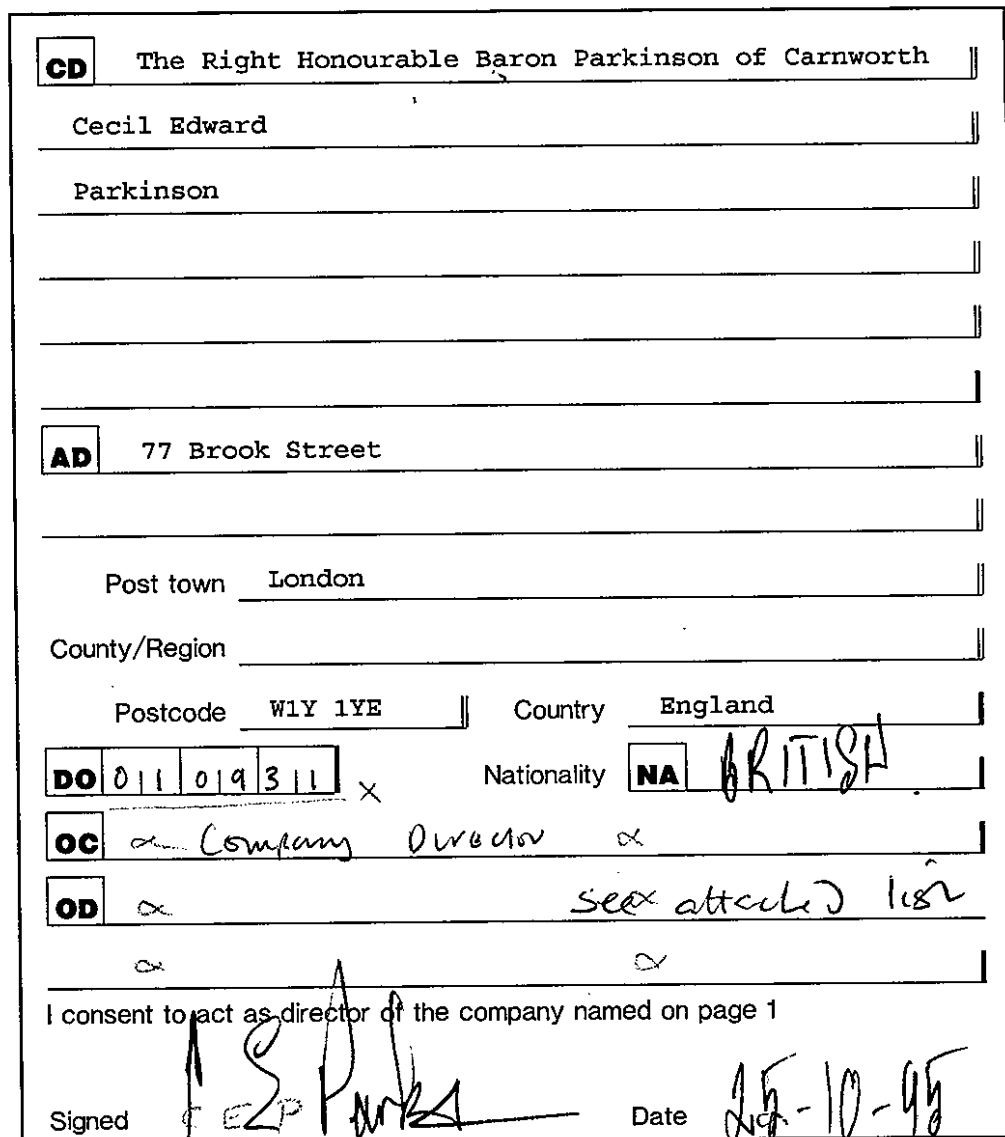 CD The Right Honourable Baron Parkinson of Carnworth
Cecil Edward
Parkinson
AD 77 Brook Street
Post town London
County/Region
Postcode W1Y 1YE Country England
DO 01 09 31 Nationality NA BRITISH
OC Company Director
OD see attached list
I consent to act as director of the company named on page 1
Signed C E Parks Date 25-10-95